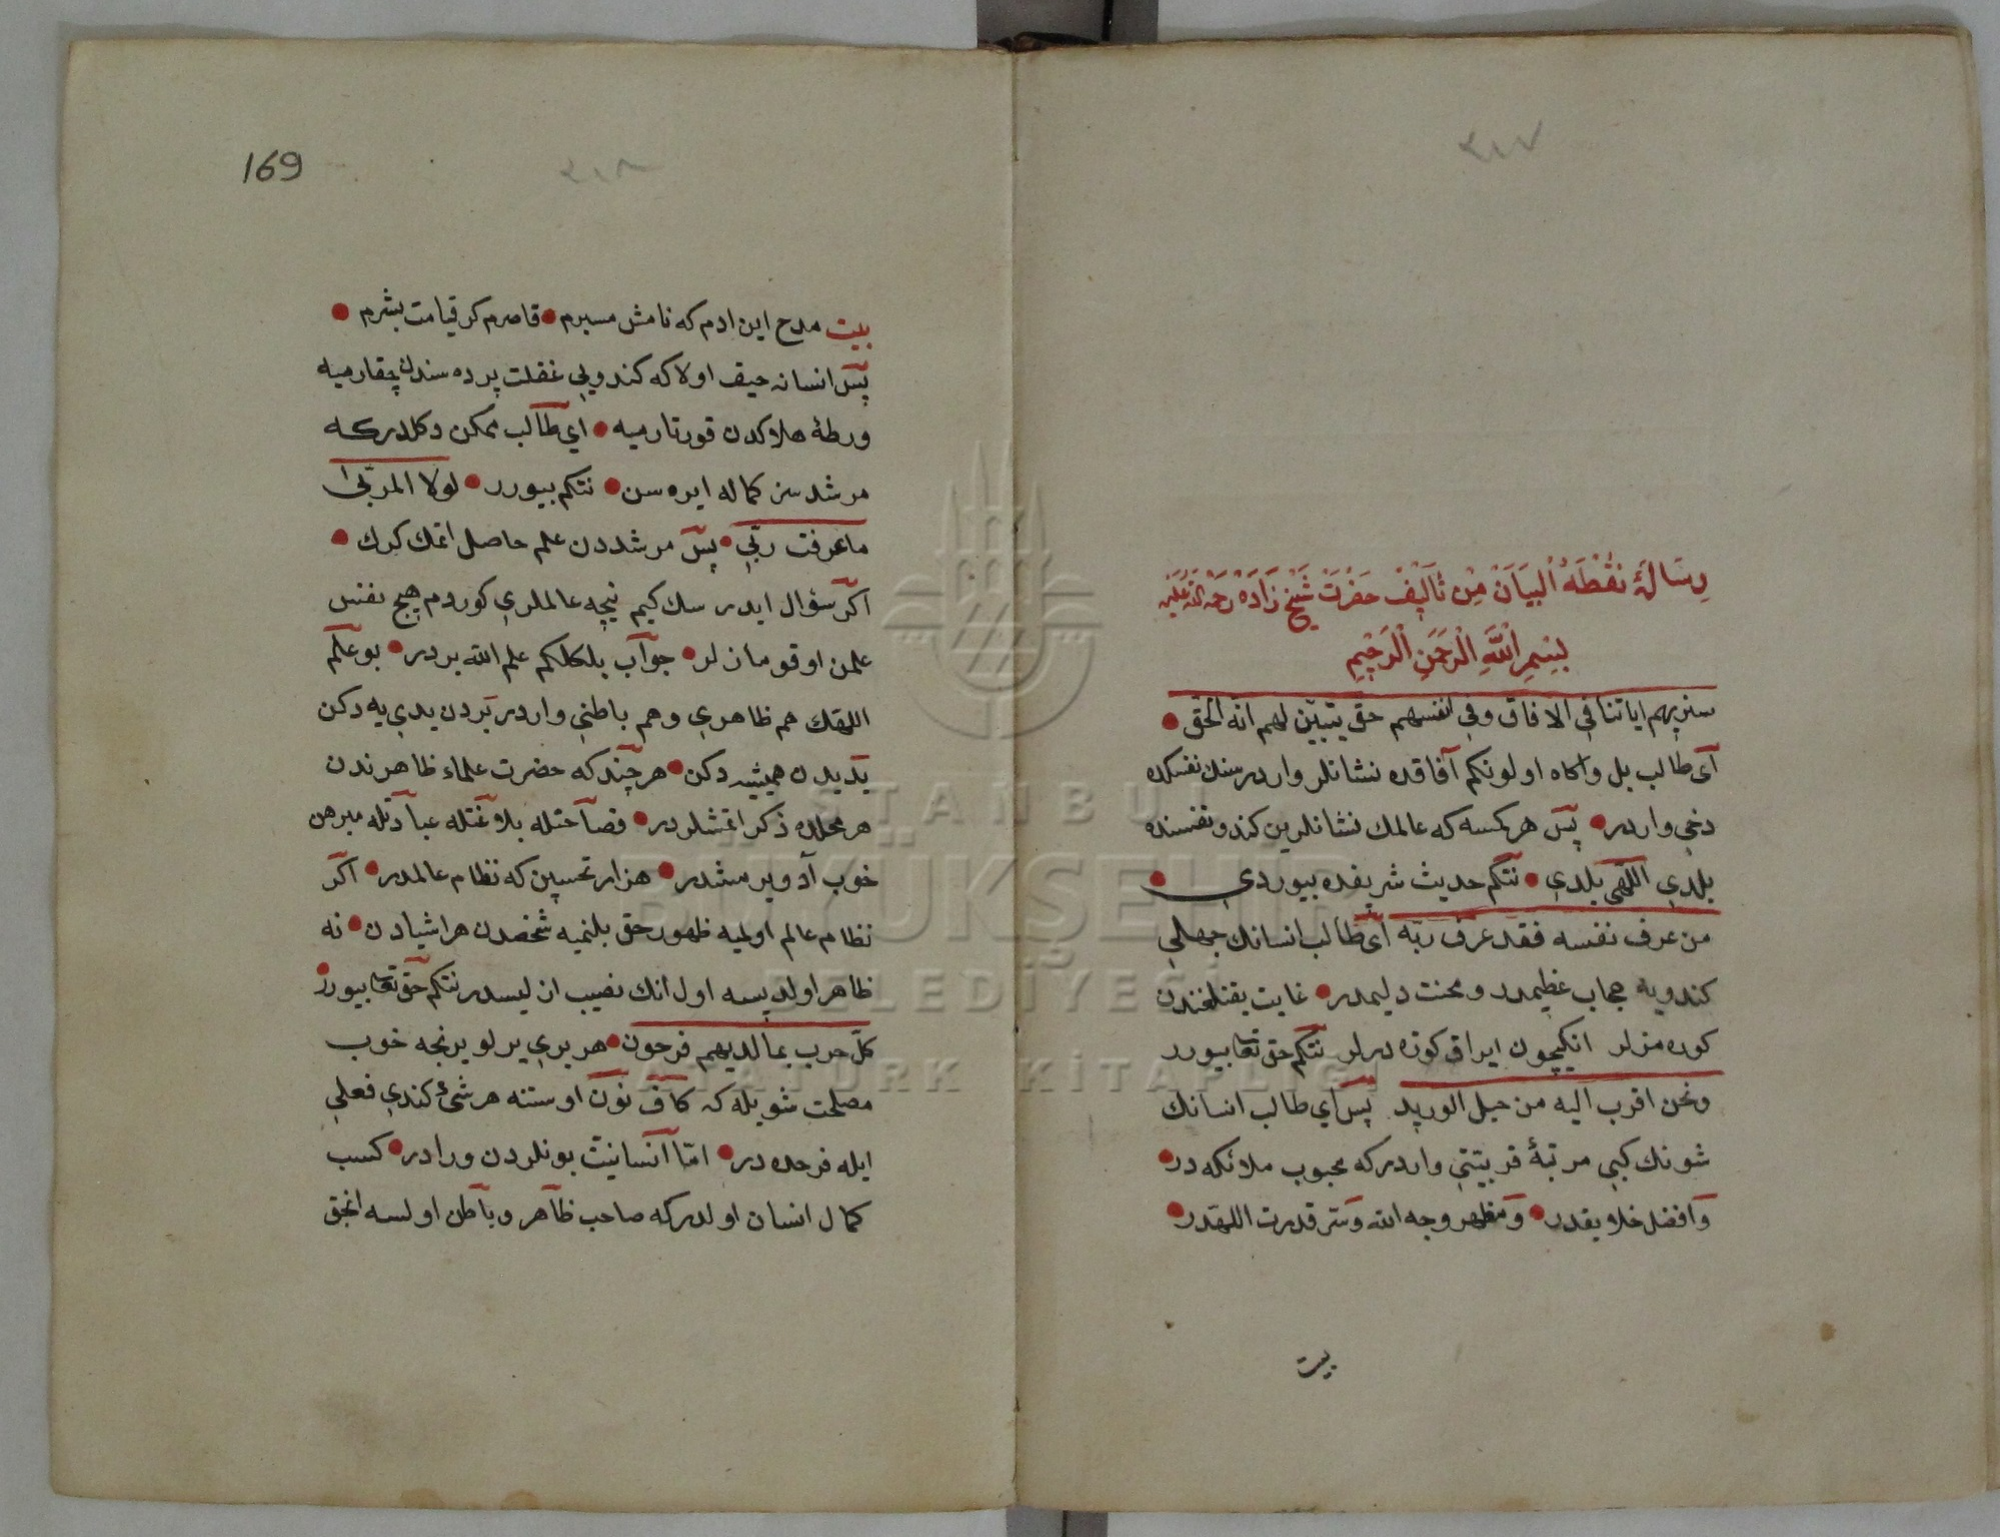 رسالۀ نقطة البيان من تأليف حضرت شيخ زاده رحمة الله عليه
بسم الله الرحمن الرحيم
سنريهم اياتنا في الافاق وفي انفسهم حتى يتبين لهم انه الحق
آى طالب بل واكاه اولونكم آفاقده نشانلر واردر سنك نفسكده
دخي واردر پس هر كمسه كه عالمك نشانلرين كندو نفسنده
بلدي اللهى بلدي نتكم حديث شريفده بيوردي
من عرف نفسه فقد عرف ربه آى طالب انسانك جهلي
كندويه حجاب عظيمدر ومحنت دليمدر غايت يقنلغندن
كوره مزلر انكيچون ايراق كوزه درلر نتكم حق تعا بيورر
ونحن اقرب اليه من حبل الوريد پس اي طالب انسانك
شونك كبي مرتبۀ قربيتي واردركه محبوب ملائكه در
وافضل خلايقدر ومظهر وجه الله وسر قدرت اللهدر
بيت
169
بيت مدح اين ادم كه نامش مسبرم قاصرم كر قيامت بشرم
پس انسانه حيف اولا كه كندويي غفلت پرده سندن چقارميه
ورطۀ هلاكدن قورتارميه اي طالب ممكن دكلدركه
مرشد سز كماله ايره سن نتكم بيورر لولا المربى
ماعرفت ربي پس مرشددن علم حاصل اتمك كرك
اكر سؤال ايدر سك كيم نيچه عالملري كوردم هيچ نفس
علمن اوقومازلر جوآب بلكلكم علم الله بردر بو علم
اللهك هم ظاهري وهم باطني واردر بردن يدي يه دكن
يديدن يتمشه دكن هر چند كه حضرت علماء ظاهرندن
هر محلده ذكر اتمشلردر فصاحتله بلاغتله عبادتله مبرهن
خوب آد ويرمشدر هزار تحسين كه نظام عالمدر اكر
نظام عالم اولميه ظهور حق بلنميه شخصدن هر اشيادن نه
ظاهر اولديسه اول انك نصيب ازليسدر نتكم حق تعا بيورر
كل حزب بما لديهم فرحون هر بري يرلو يرنجه خوب
مصلحت شويله كه كاف نون اوستنه هر شئ كندي فعلي
ايله فرحده در امّا آنسانيت بونلردن ورادر كسب
كمال انسان اولدركه صاحب ظاهر وباطن اولسه انجق